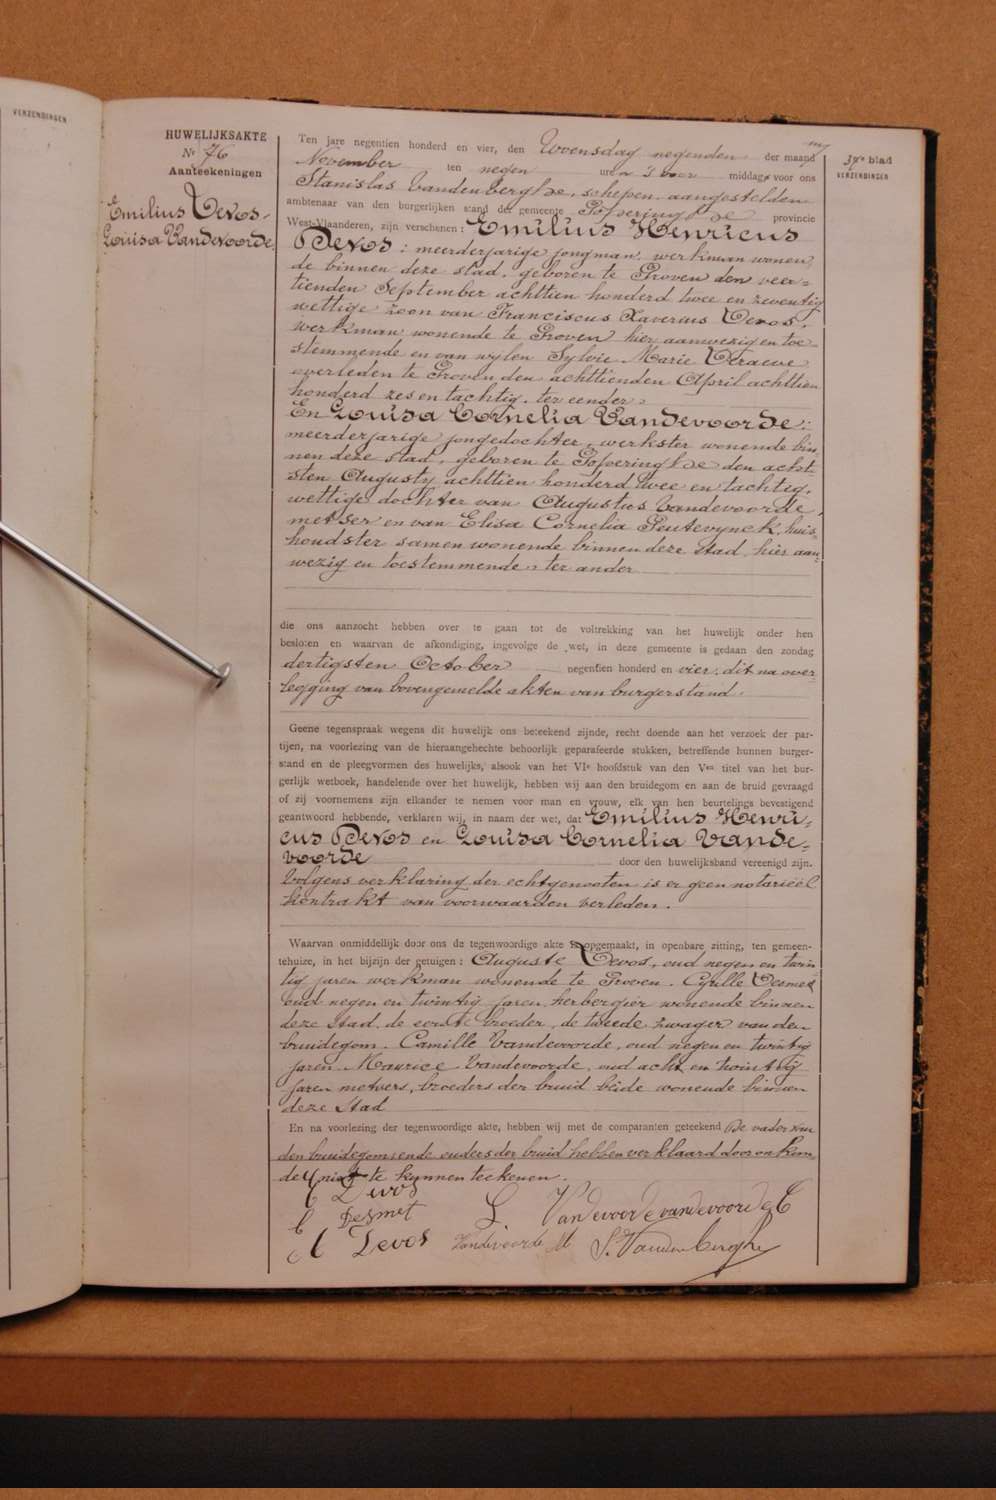 VERZENDINGEN
HUWELIJKSAKTE
Nr 76
Aanteekeningen
Emilius Devos-
Louisa Vandevoorde
37e blad
VERZENDINGEN
Ten jare negentien honderd en vier, den Woensdag negenden der maand
November ten negen uren voor middags voor ons
Stanislas Vandenberghe, schepen aangestelden
ambtenaar van den burgerlijken stand der gemeente Poperinghe provincie
West-Vlaanderen, zijn verschenen: Emilius Henricus
Devos: meerderjarige jongman, werkman wonen,
de binnen deze stad, geboren te Proven den veer-
tienden September achttien honderd twee en zeventig
wettige zoon van Franciscus Xaverius Devos,
werkman wonende te Proven hier aanwezig en toe-
stemmende en van wylen Sylvie Marie Deraeve
overleden te Proven den achttienden April achttien
honderd zes en tachtig, ter eender;
En Louisa Cornelia Vandevoorde:
meerderjarige jongedochter, werkster wonende bin,
nen deze stad, geboren te Poperinghe den acht-
sten Augusty achttien honderd twee en tachtig,
wettige dochter van Augustus Vandevoorde,
metser en van Elisa Cornelia Peutevynck, huis-
houdster samen wonende binnen deze stad, hier aan-
wezig en toestemmende, ter ander
die ons aanzocht hebben over te gaan tot de voltrekking van het huwelijk onder hen
besloten en waarvan de afkondiging, ingevolge de wet, in deze gemeente is gedaan den zondag
dertigsten October negentien honderd en vier, dit na over-
legging van bovengemelde akten van burgerstand.
Geene tegenspraak wegens dit huwelijk ons beteekend zijnde, recht doende aan het verzoek der par-
tijen, na voorlezing van de hieraangehechte behoorlijk geparafeerde stukken, betreffende hunnen burger-
stand en de pleegvormen des huwelijks, alsook van het VIe hoofdstuk van den Ven titel van het bur-
gerlijk wetboek, handelende over het huwelijk, hebben wij aan den bruidegom en aan de bruid gevraagd
of zij voornemens zijn elkander te nemen voor man en vrouw, elk van hen beurtelings bevestigend
geantwoord hebbende, verklaren wij, in naam der wet, dat Emilius Henri-
cus Devos en Louisa Cornelia Vande-
voorde door den huwelijksband vereenigd zijn.
Volgens verklaring der echtgenooten is er geen notariëel
kontrakt van voorwaarden verleden.
Waarvan onmiddellijk door ons de tegenwoordige akte is opgemaakt, in openbare zitting, ten gemeen-
tehuize, in het bijzijn der getuigen: Auguste Devos, oud negen en twin
tig jaren werkman wonende te Proven. Cyrille Desmet
oud negen en twintig jaren, herbergier wonende binnen
deze stad, de eerste broeder, de tweede zwager van den
bruidegom. Camille Vandevoorde, oud negen en twintig
jaren Maurice Vandevoorde, oud acht en twintig
jaren metsers, broeders der bruid beide wonende binnen
deze stad
En na voorlezing der tegenwoordige akte, hebben wij met de comparanten geteekend De vader van
den bruidegom en de ouders der bruid hebben verklaard door onkun
de niet te kunnen teekenen.
E Devos
C Desmet L Vandevoorde vandevoorde C
A Devos Vandevoorde M S. Vandenberghe